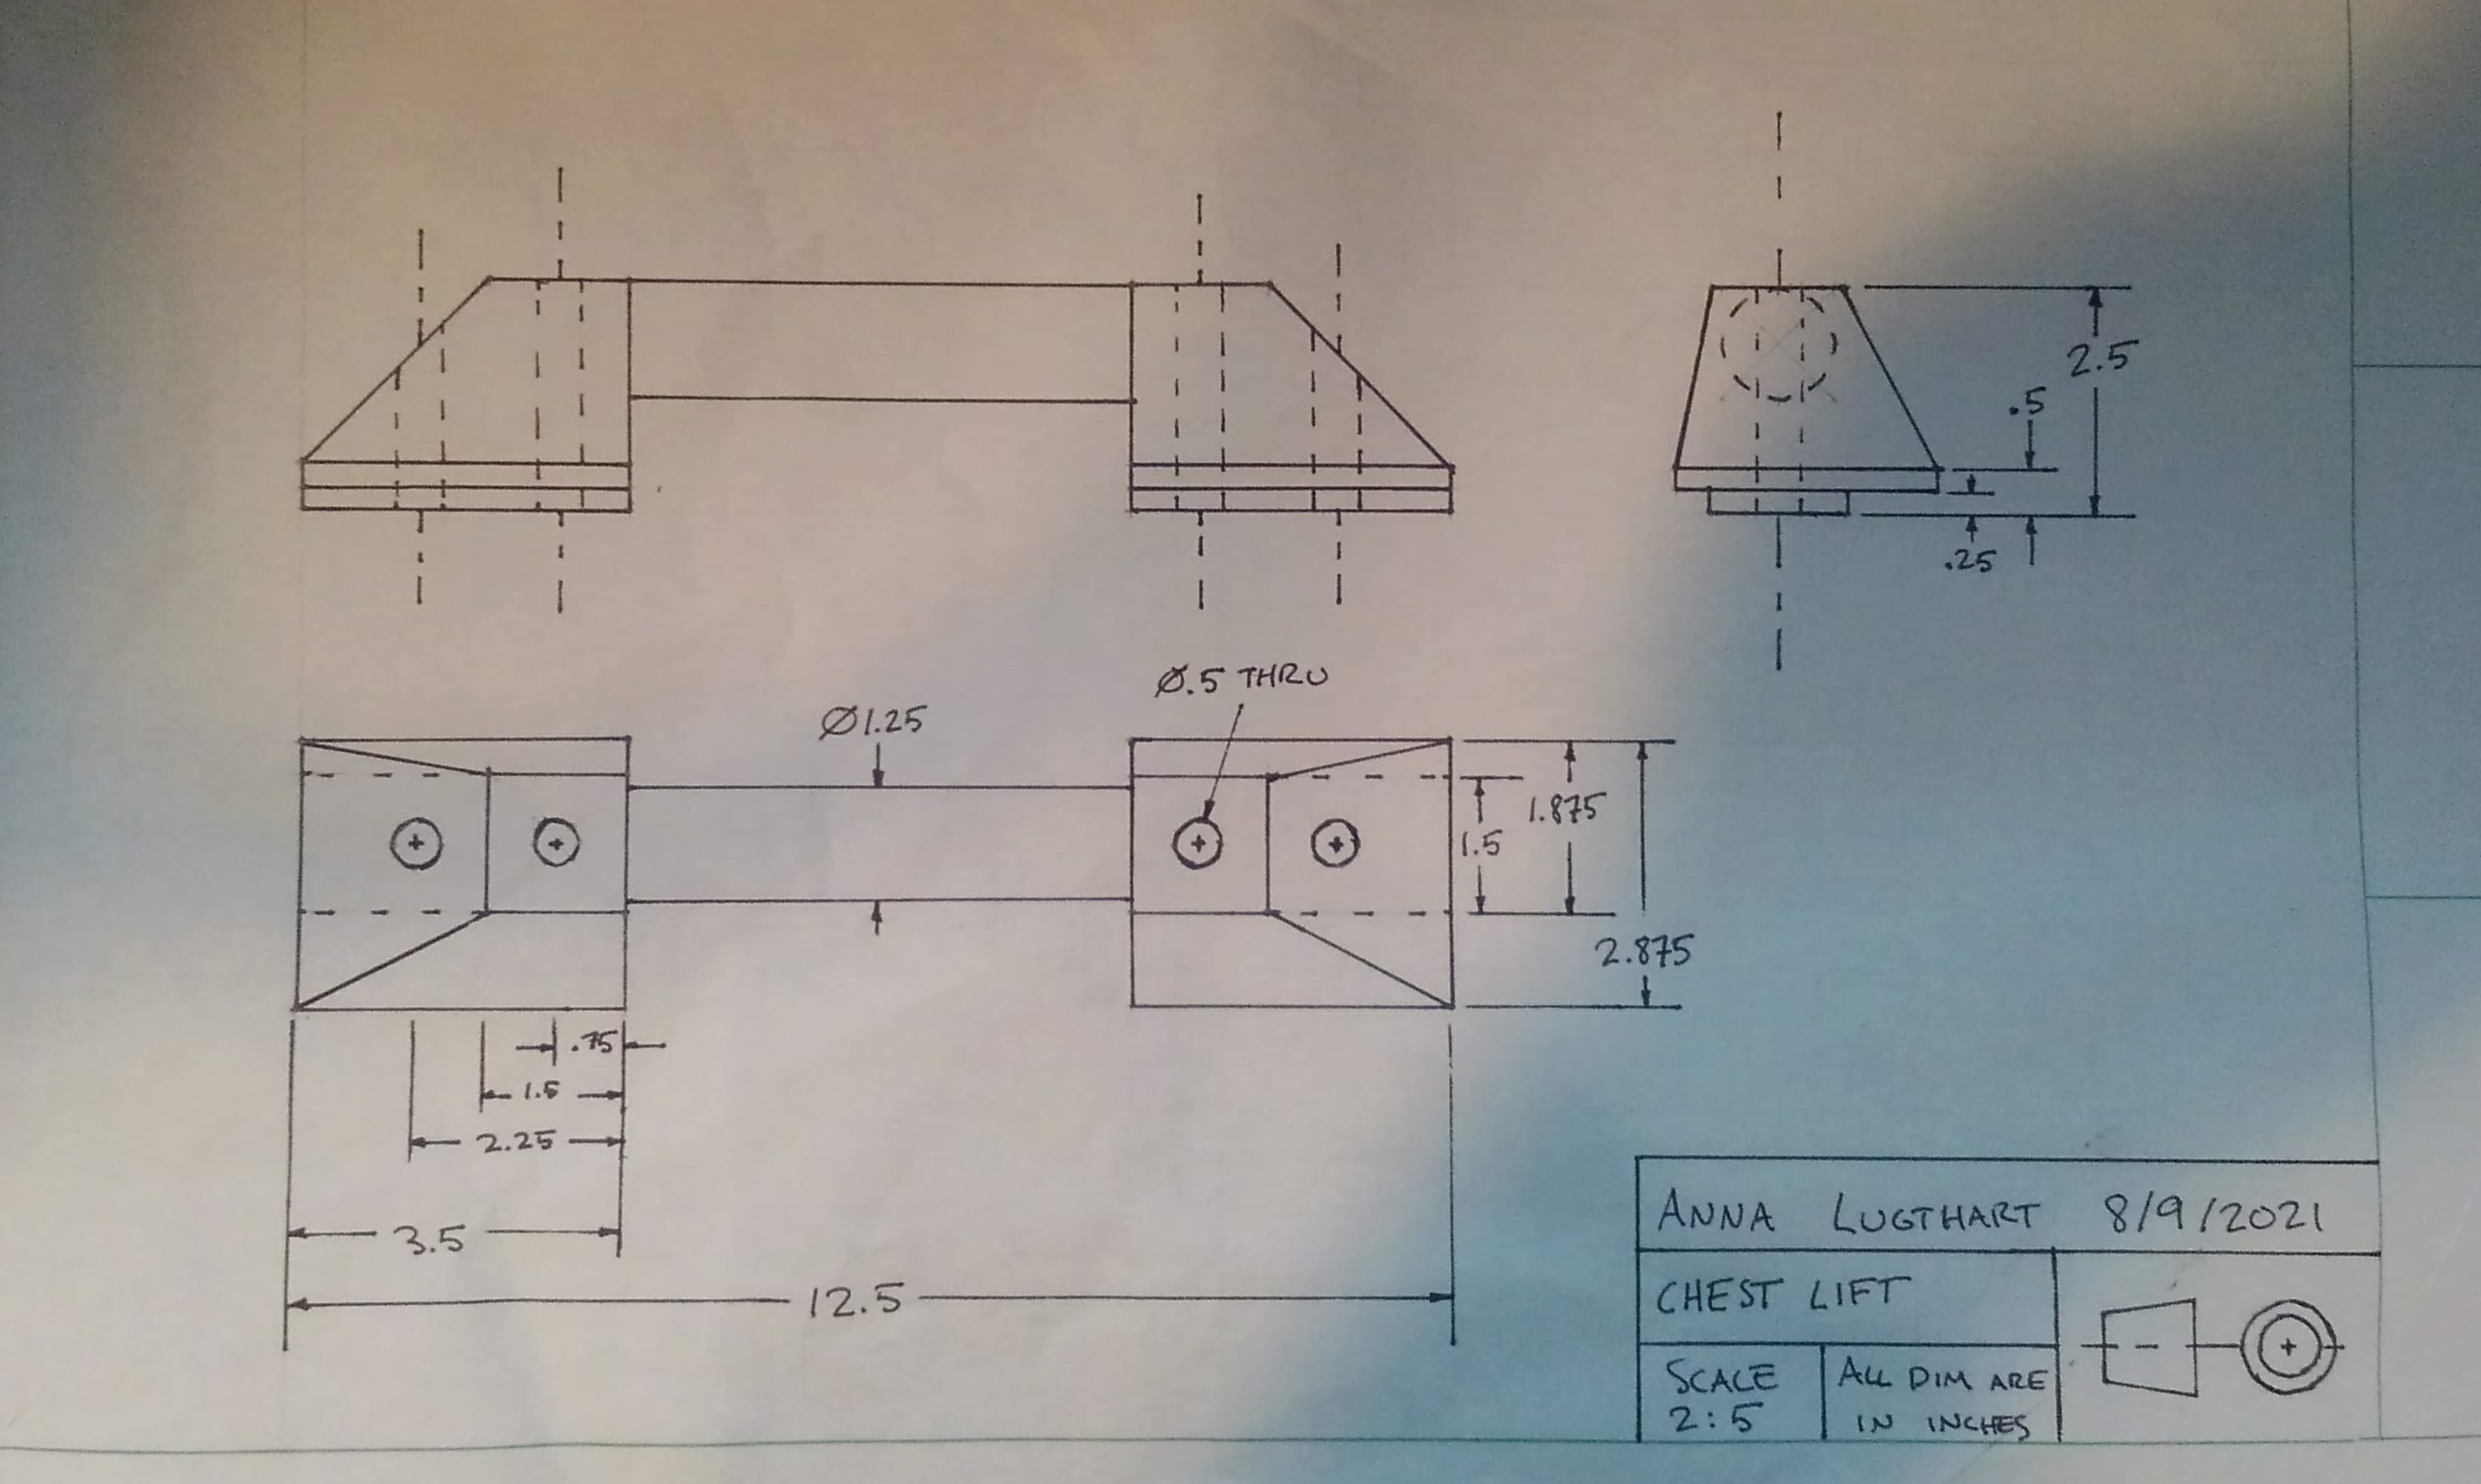 2.5
.5
.25
Ø.5 THRU
Ø1.25
1.875
1.5
2.875
.75
1.5
2.25
3.5
12.5
ANNA LUGTHART 8/9/2021
CHEST LIFT
SCALE
2:5
ALL DIM ARE
IN INCHES